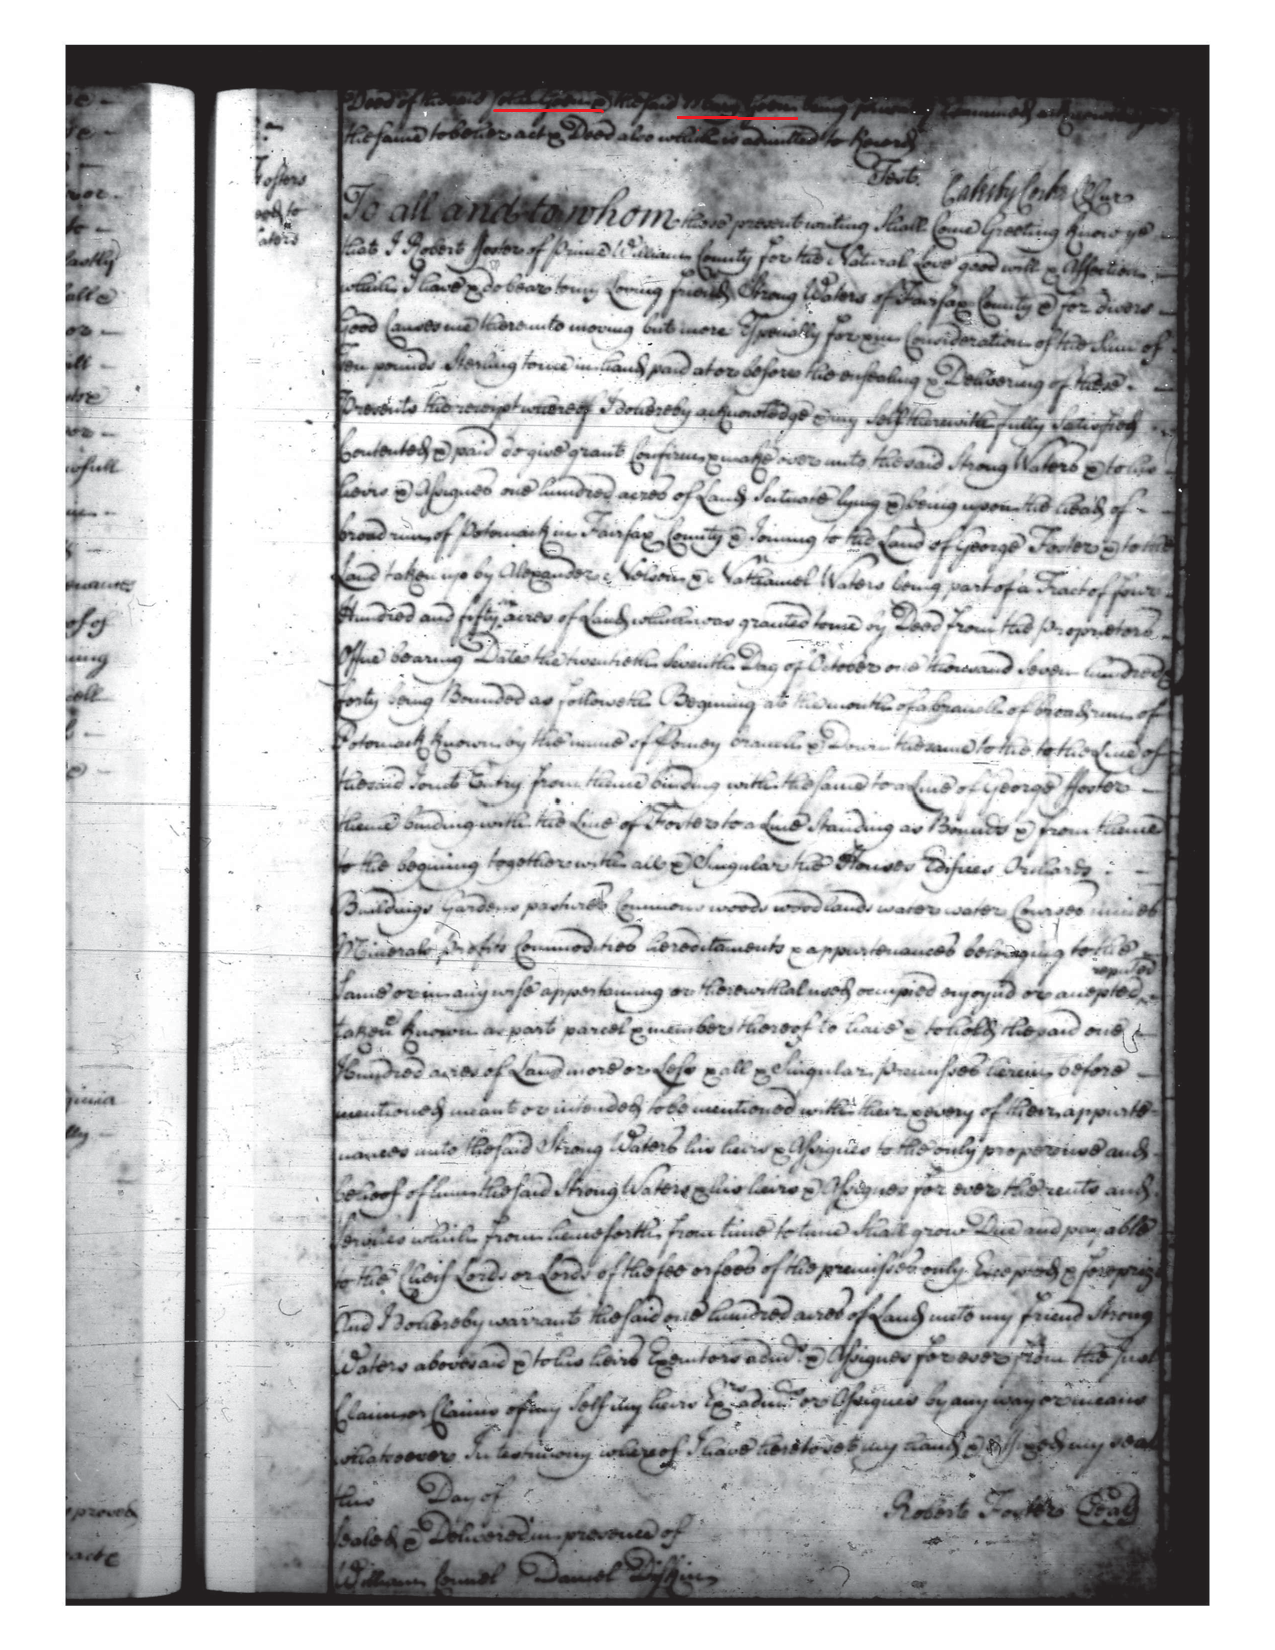 Deed of the said John Goen & the said Mary Goen being privately Examined acknowledged
the same to be her act & Deed also which is admitted to Record
Test. Catesby Cocke Cl Cur
Fosters
Deed to
Waters
To all and to whom these present writing Shall Come Greeting Know ye
that I Robert Foster of Prince William County for the Natural Love good will & Affection
which I have & do bear to my Loving friend Strong Waters of Fairfax County & for divers
Good Causes me thereunto moving but more Especially for & in Consideration of the Sum of
Ten pounds Sterling to me in hand paid at or before the ensealing & Delivering of these
Presents the receipt whereof I do hereby acknowledge & my Self therewith fully Satisfied
Contented & paid do give grant Confirm & make over unto the said Strong Waters & to his
heirs & Assignes one hundred acres of Land Scituate lying & being upon the head of
broad run of Potomack in Fairfax County & Joining to the Land of George Foster & to the
Land taken up by Alexander Nelson & Nathaniel Waters being part of a Tract of four
Hundred and fifty acres of Land which was granted to me by Deed from the Proprietors
Office bearing Date the twentieth Seventh Day of October one thousand Seven hundred &
forty being Bounded as followeth Begining at the mouth of a branch of broad run of
Potomack Known by the name of Piney branch & Down the same to the to the Line of
the said Joint Entry from thence binding with the same to a Line of George Foster
thence binding with the Line of Foster to a Line Standing as Bounds & from thence
to the begining together with all & Singular the Houses Edifices Orchards
Buildings Gardens pastures Commons woods woodlands water water Courses mines
Minerals profits Commodities hereditaments & appurtenances belonging to the
reputed
Same or in any wise appertaining or therewithal used occupied enjoyed or accepted
taken Known as part parcel & member thereof to have & to hold the said one
Hundred acres of Land more or Less & all & Singular premisses herein before
mentioned meant or intended to be mentioned with their & every of their appurte-
nances unto the said Strong Waters his heirs & Assignes to the only proper use and
behoof of him the said Strong Waters & his heirs & Assignes for ever the rents and
Services which from henceforth from time to time Shall grow Due and payable
to the Cheif Lords or Lords of the fee or fees of the premisses only Excepted & foreprized
And I do hereby warrant the said one hundred acres of Land unto my friend Strong
Waters abovesaid & to his heirs Executors admrs & Assignes for ever from the Just
Claim or Claims of my Self my heirs Exrs admrs or Assignes by any way or means
whatsoever In testimony whereof I have hereto set my hand & affixed my seal
this Day of
Robert Foster (Seal)
Sealed & Delivered in presence of
William Connel Daniel Diskin